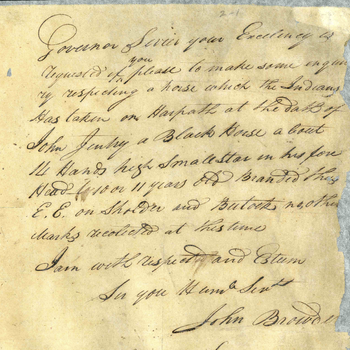 24
Governor Sevier your Excelency is
you
requested if please to make some inqui
ry respecting a horse which the Indians
Has taken on Harpath at the death of
John Jentry a Black Horse a bout
14 Hands high Small Star in his fore
Head 10 or 11 years old Branded thus
E. E. on Sholder and Butock no other
Marks recolected at this time
I am with respect and Esteem
Sir you Humb Servt
John Browder